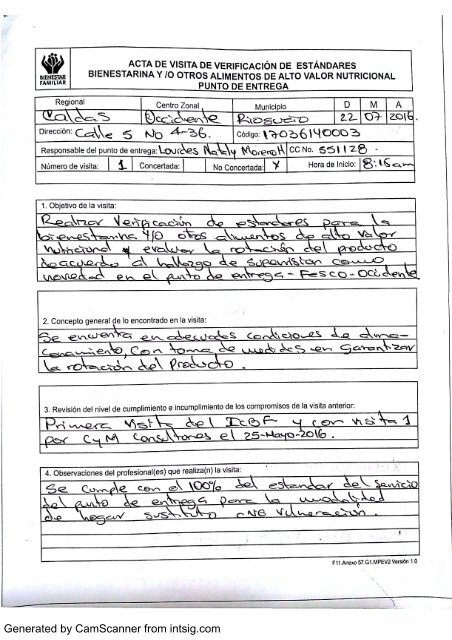 BIENESTAR
FAMILIAR
ACTA DE VISITA DE VERIFICACIÓN DE ESTÁNDARES
BIENESTARINA Y /O OTROS ALIMENTOS DE ALTO VALOR NUTRICIONAL
PUNTO DE ENTREGA
Regional Centro Zonal Municipio D M A
Caldas Occidente Riosucio 22 07 2016.
Dirección: Calle 5 No 4-36. Código: 17036140003
Responsable del punto de entrega: Lourdes Nataly Moreno H CC No. 551128-
Número de visita: 1 Concertada: No Concertada: X Hora de Inicio: 8:16am
1. Objetivo de la visita:
Realizar Verificación de estandares para la
bienestarina y/o otros alimentos de alto valor
nutricional y evaluar la rotación del producto
deacuerdo al hallazgo de supervision como
novedad en el punto de entrega - Fesco-Occidente
2. Concepto general de lo encontrado en la visita:
Se encuentra en adecuadas condiciones de alma-
cenamiento, con toma de medidas en Garantizar
la rotación del Producto.
3. Revisión del nivel de cumplimiento e incumplimiento de los compromisos de la visita anterior:
Primera Visita del ICBF y con visita 1
por CyM Consultores el 25-Mayo-2016.
4. Observaciones del profesional(es) que realiza(n) la visita:
Se cumple con el 100% del estandar del Servicio
del punto de entrega para la modalidad
de hogar sustituto Vulneración.
F11.Anexo 57.G1.MPEV2 Versión 1.0
Generated by CamScanner from intsig.com